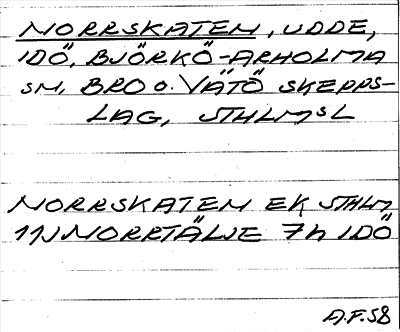 NORRSKATEN, UDDE,
IDÖ, BJÖRKÖ-ARHOLMA
SN, BRO O. VÄTÖ SKEPPS-
LAG, STHLMSL
NORRSKATEN EK STHLM
11J NORRTÄLJE 7h IDÖ
A.F.58